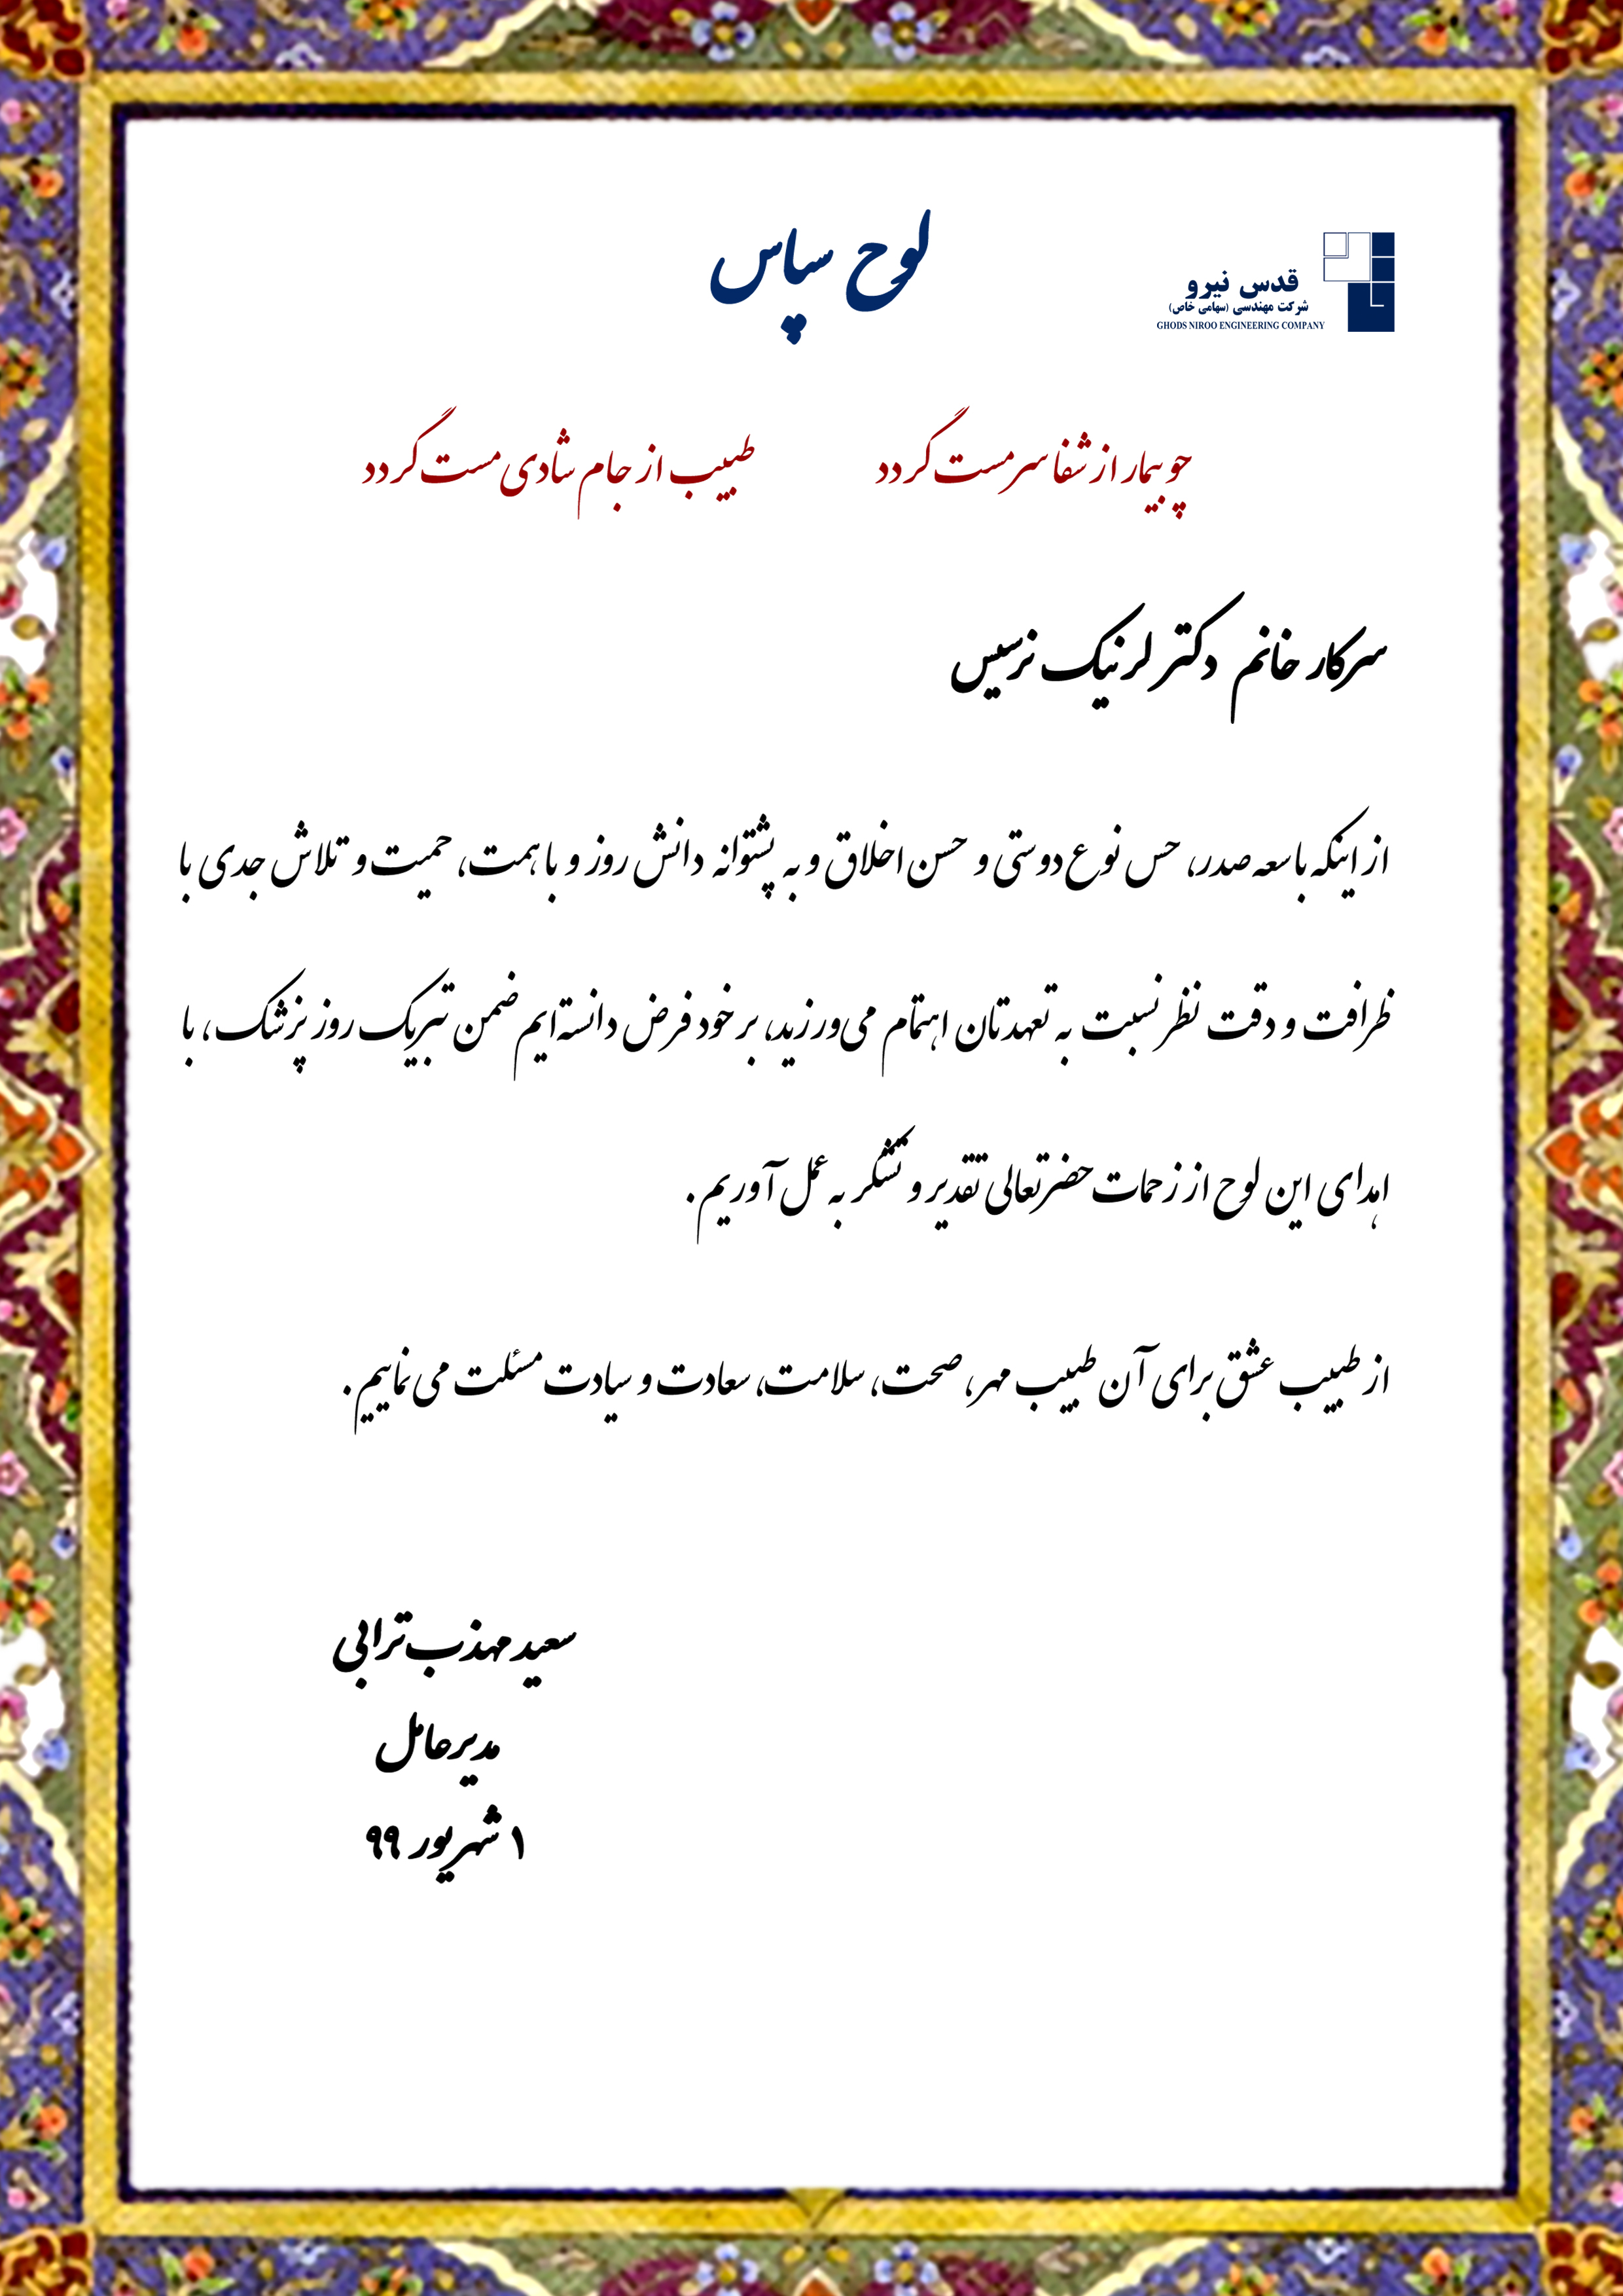 لوح سپاس
قدس نیرو
شرکت مهندسی (سهامی خاص)
GHODS NIROO ENGINEERING COMPANY
چو بیمار از شفا سرمست گردد طبیب از جام شادی مست گردد
سرکار خانم دکتر لرنیک نرسیس
از اینکه با سعه صدر، حس نوع دوستی و حسن اخلاق و به پشتوانه دانش روز و با همت، حمیت و تلاش جدی با
ظرافت و دقت نظر نسبت به تعهدتان اهتمام می‌ورزید، بر خود فرض دانسته‌ایم ضمن تبریک روز پزشک، با
اهدای این لوح از زحمات حضرتعالی تقدیر و تشکر به عمل آوریم.
از طبیب عشق برای آن طبیب مهر، صحت، سلامت، سعادت و سیادت مسئلت می نماییم.
سعید مهذب ترابی
مدیرعامل
۱ شهریور ۹۹